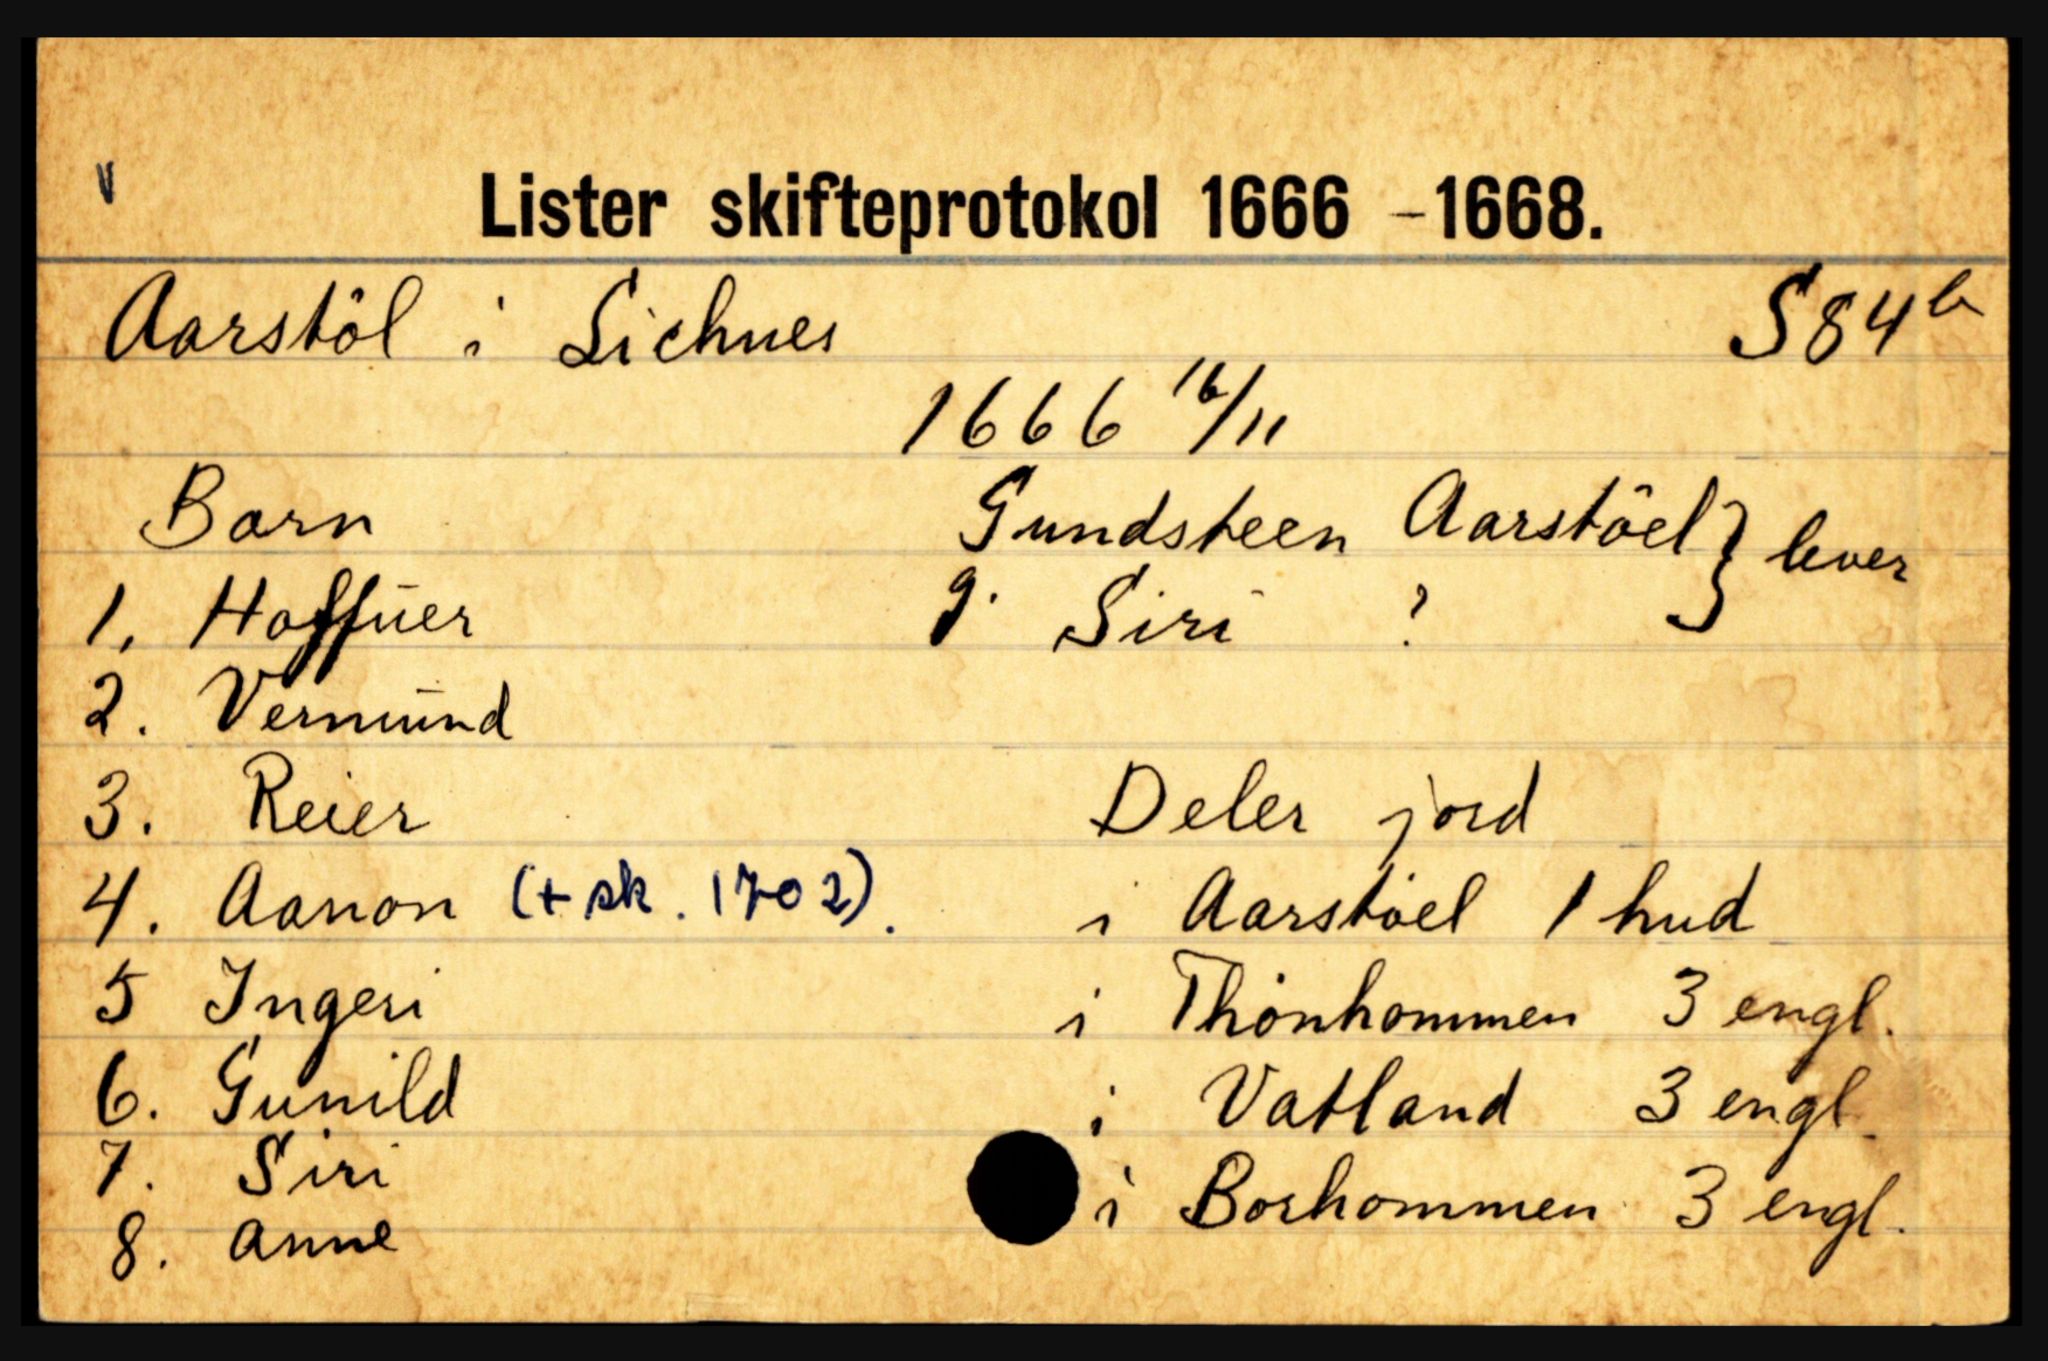 V
Lister skifteprotokol 1666 - 1668.
Aarstöl i Sichnes S 84 b
1666 16/11
Barn Gundsteen Aarstöel } lever
1. Hoffuer g. Siri ?
2. Vermund
3. Reier Deler jord
4. Aanon (+ sk. 1702). i Aarstöel 1 hud
5 Ingeri i Thönhommen 3 engl.
6. Gunild i Vatland 3 engl.
7. Siri i Borhommen 3 engl.
8. Anne